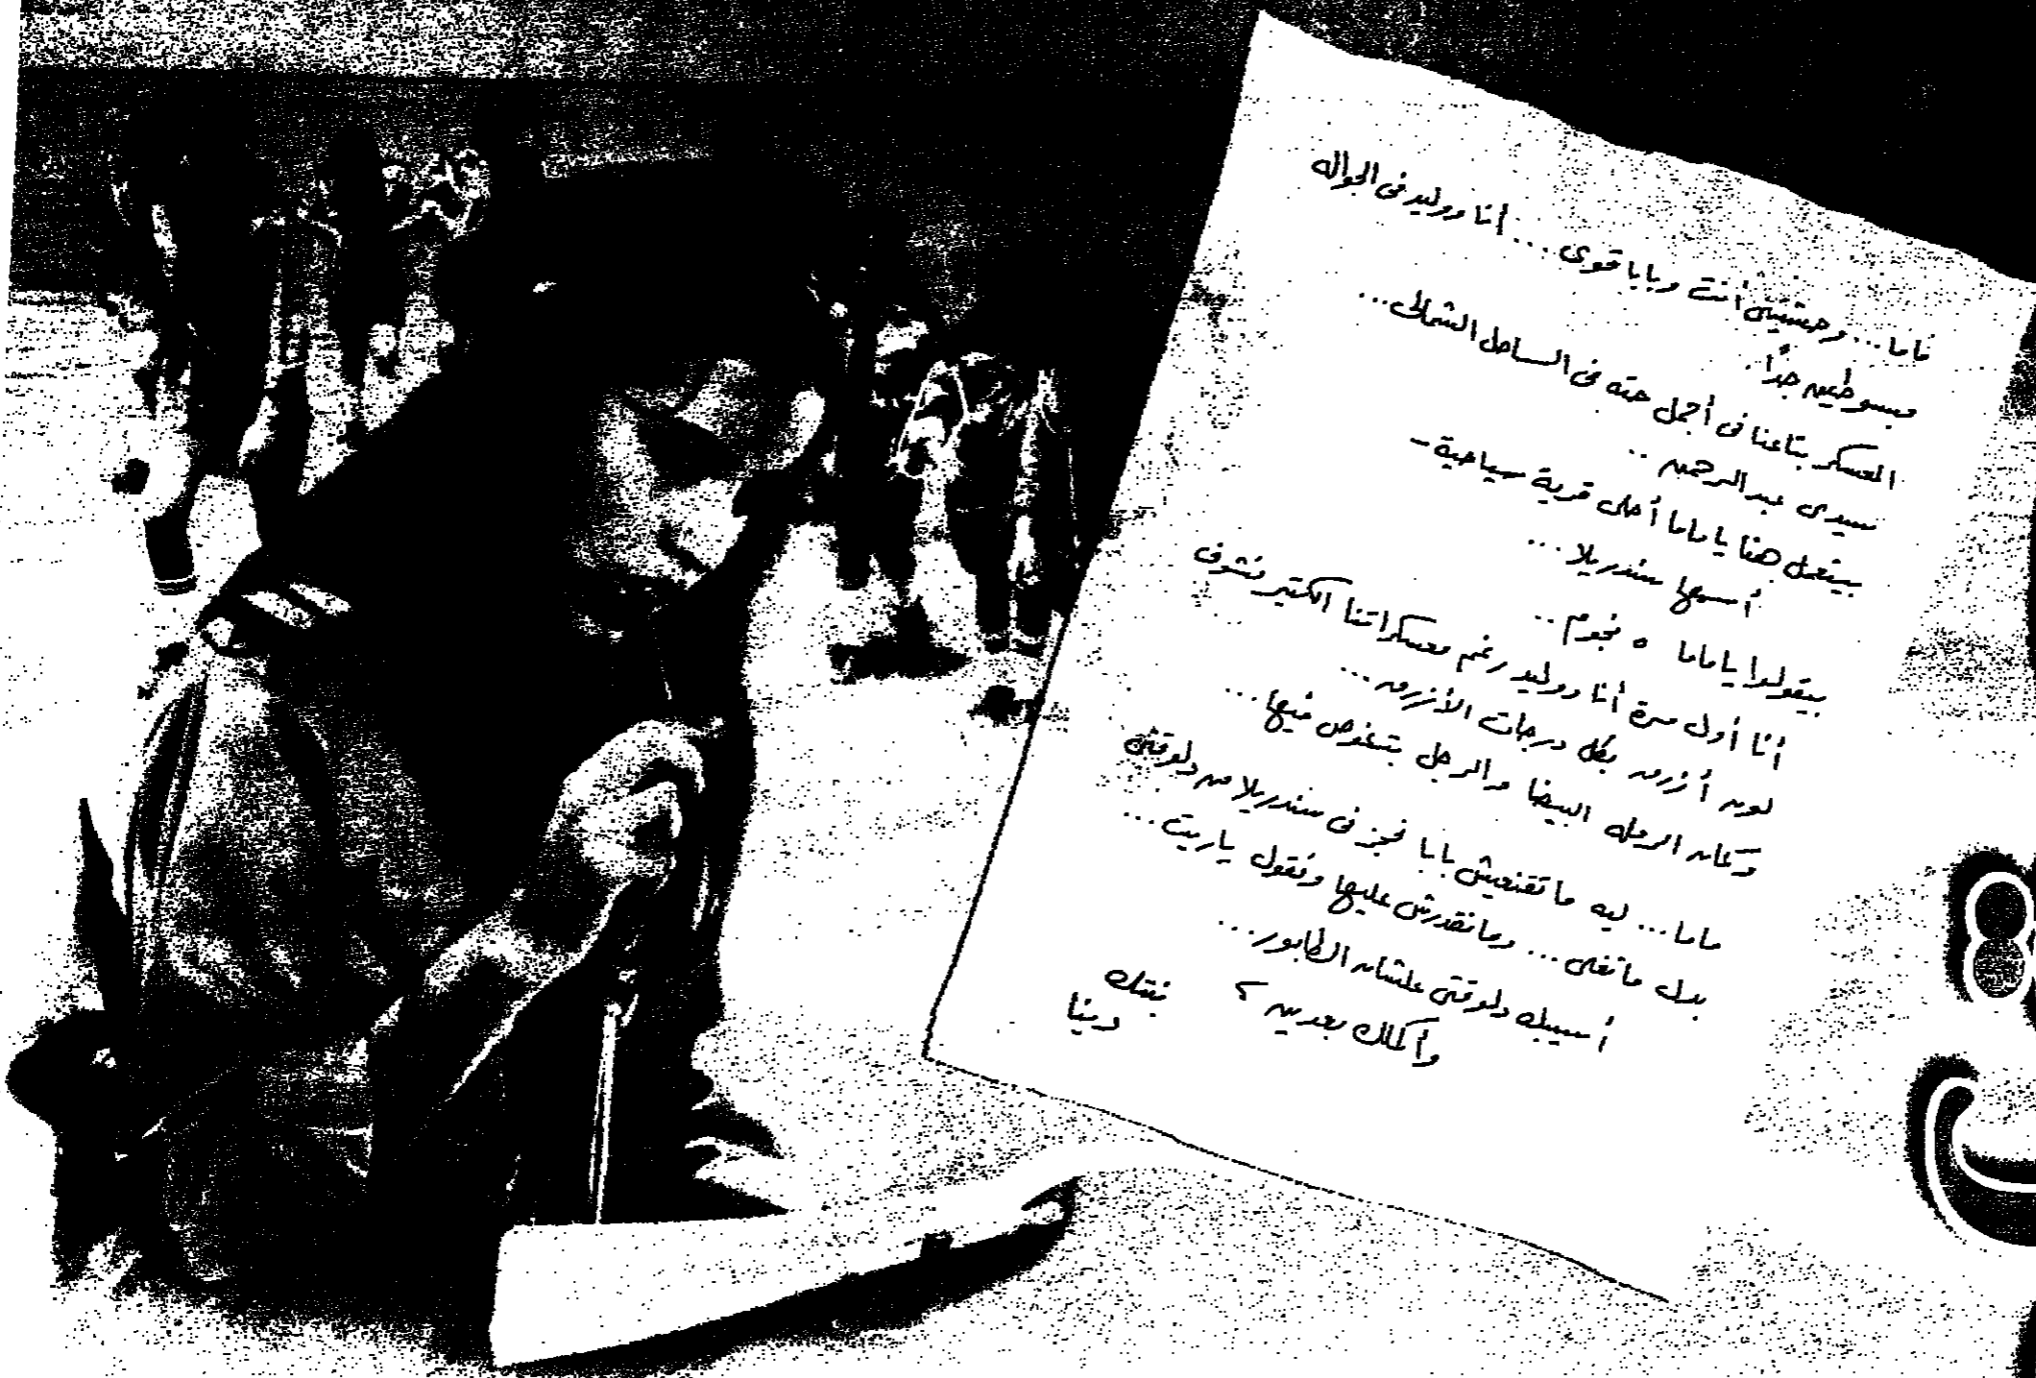 ماما... وحشتينى أنت وبابا قوى... أنا ووليد فى الجواله
مبسوطين جداً.
المعسكر بتاعنا فى أجمل حته فى الساحل الشمالى...
سيدى عبد الرحمن ..
بيتعمل هنا يا ماما أحلى قرية سياحية -
أسمها سندريلا...
بيقولوا يا ماما ٥ نجوم ..
أنا أول مرة أنا ووليد رغم معسكراتنا الكتير نشوف
لون أزرق بكل درجات الأزرق...
وكمان الرمله البيضا والرجل بتغوص فيها...
ماما... ليه ماتقنعيش بابا نحجز فى سندريلا من دلوقتى
بدل ماتغلى... ومانقدرش عليها ونقول ياريت...
أسيبك دلوقتى علشان الطابور...
وأكلمك بعدين ؟
بنتك
دينا